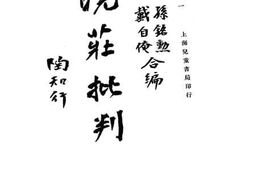 一
上海兒童書局印行
孫銘勲
戴自俺 合编
晓莊批判
陶知行